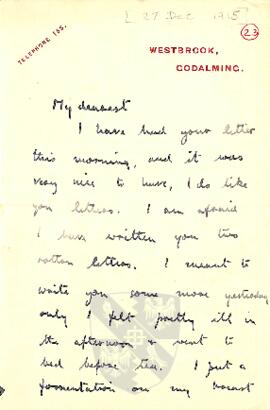 [27 Dec 1915
23
TELEPHONE 135.
WESTBROOK,
GODALMING.
My dearest
I have had your letter
this morning, and it was
very nice to have, I do like
you letters. I am afraid
I have written you two
rotten letters. I meant to
write you some more yesterday
only I felt pretty ill in
the afternoon & went to
bed before tea. I put a
fomentation on my breast